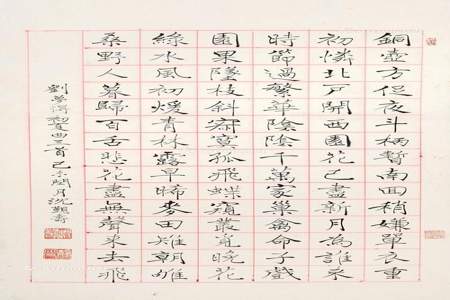 銅壺方促夜斗柄暫南回稍嫌單衣重
初憐北戶開西園花已盡新月為誰來
時節過繁華陰陰千萬家巢禽命子戲
園果墜枝斜寂寞孤飛蝶窺叢覓晚花
綠水風初煖青林露早晞麥田雉朝雊
桑野人暮歸百舌悲花盡無聲來去飛
劉夢得初夏曲三首己未閏月沈覲壽